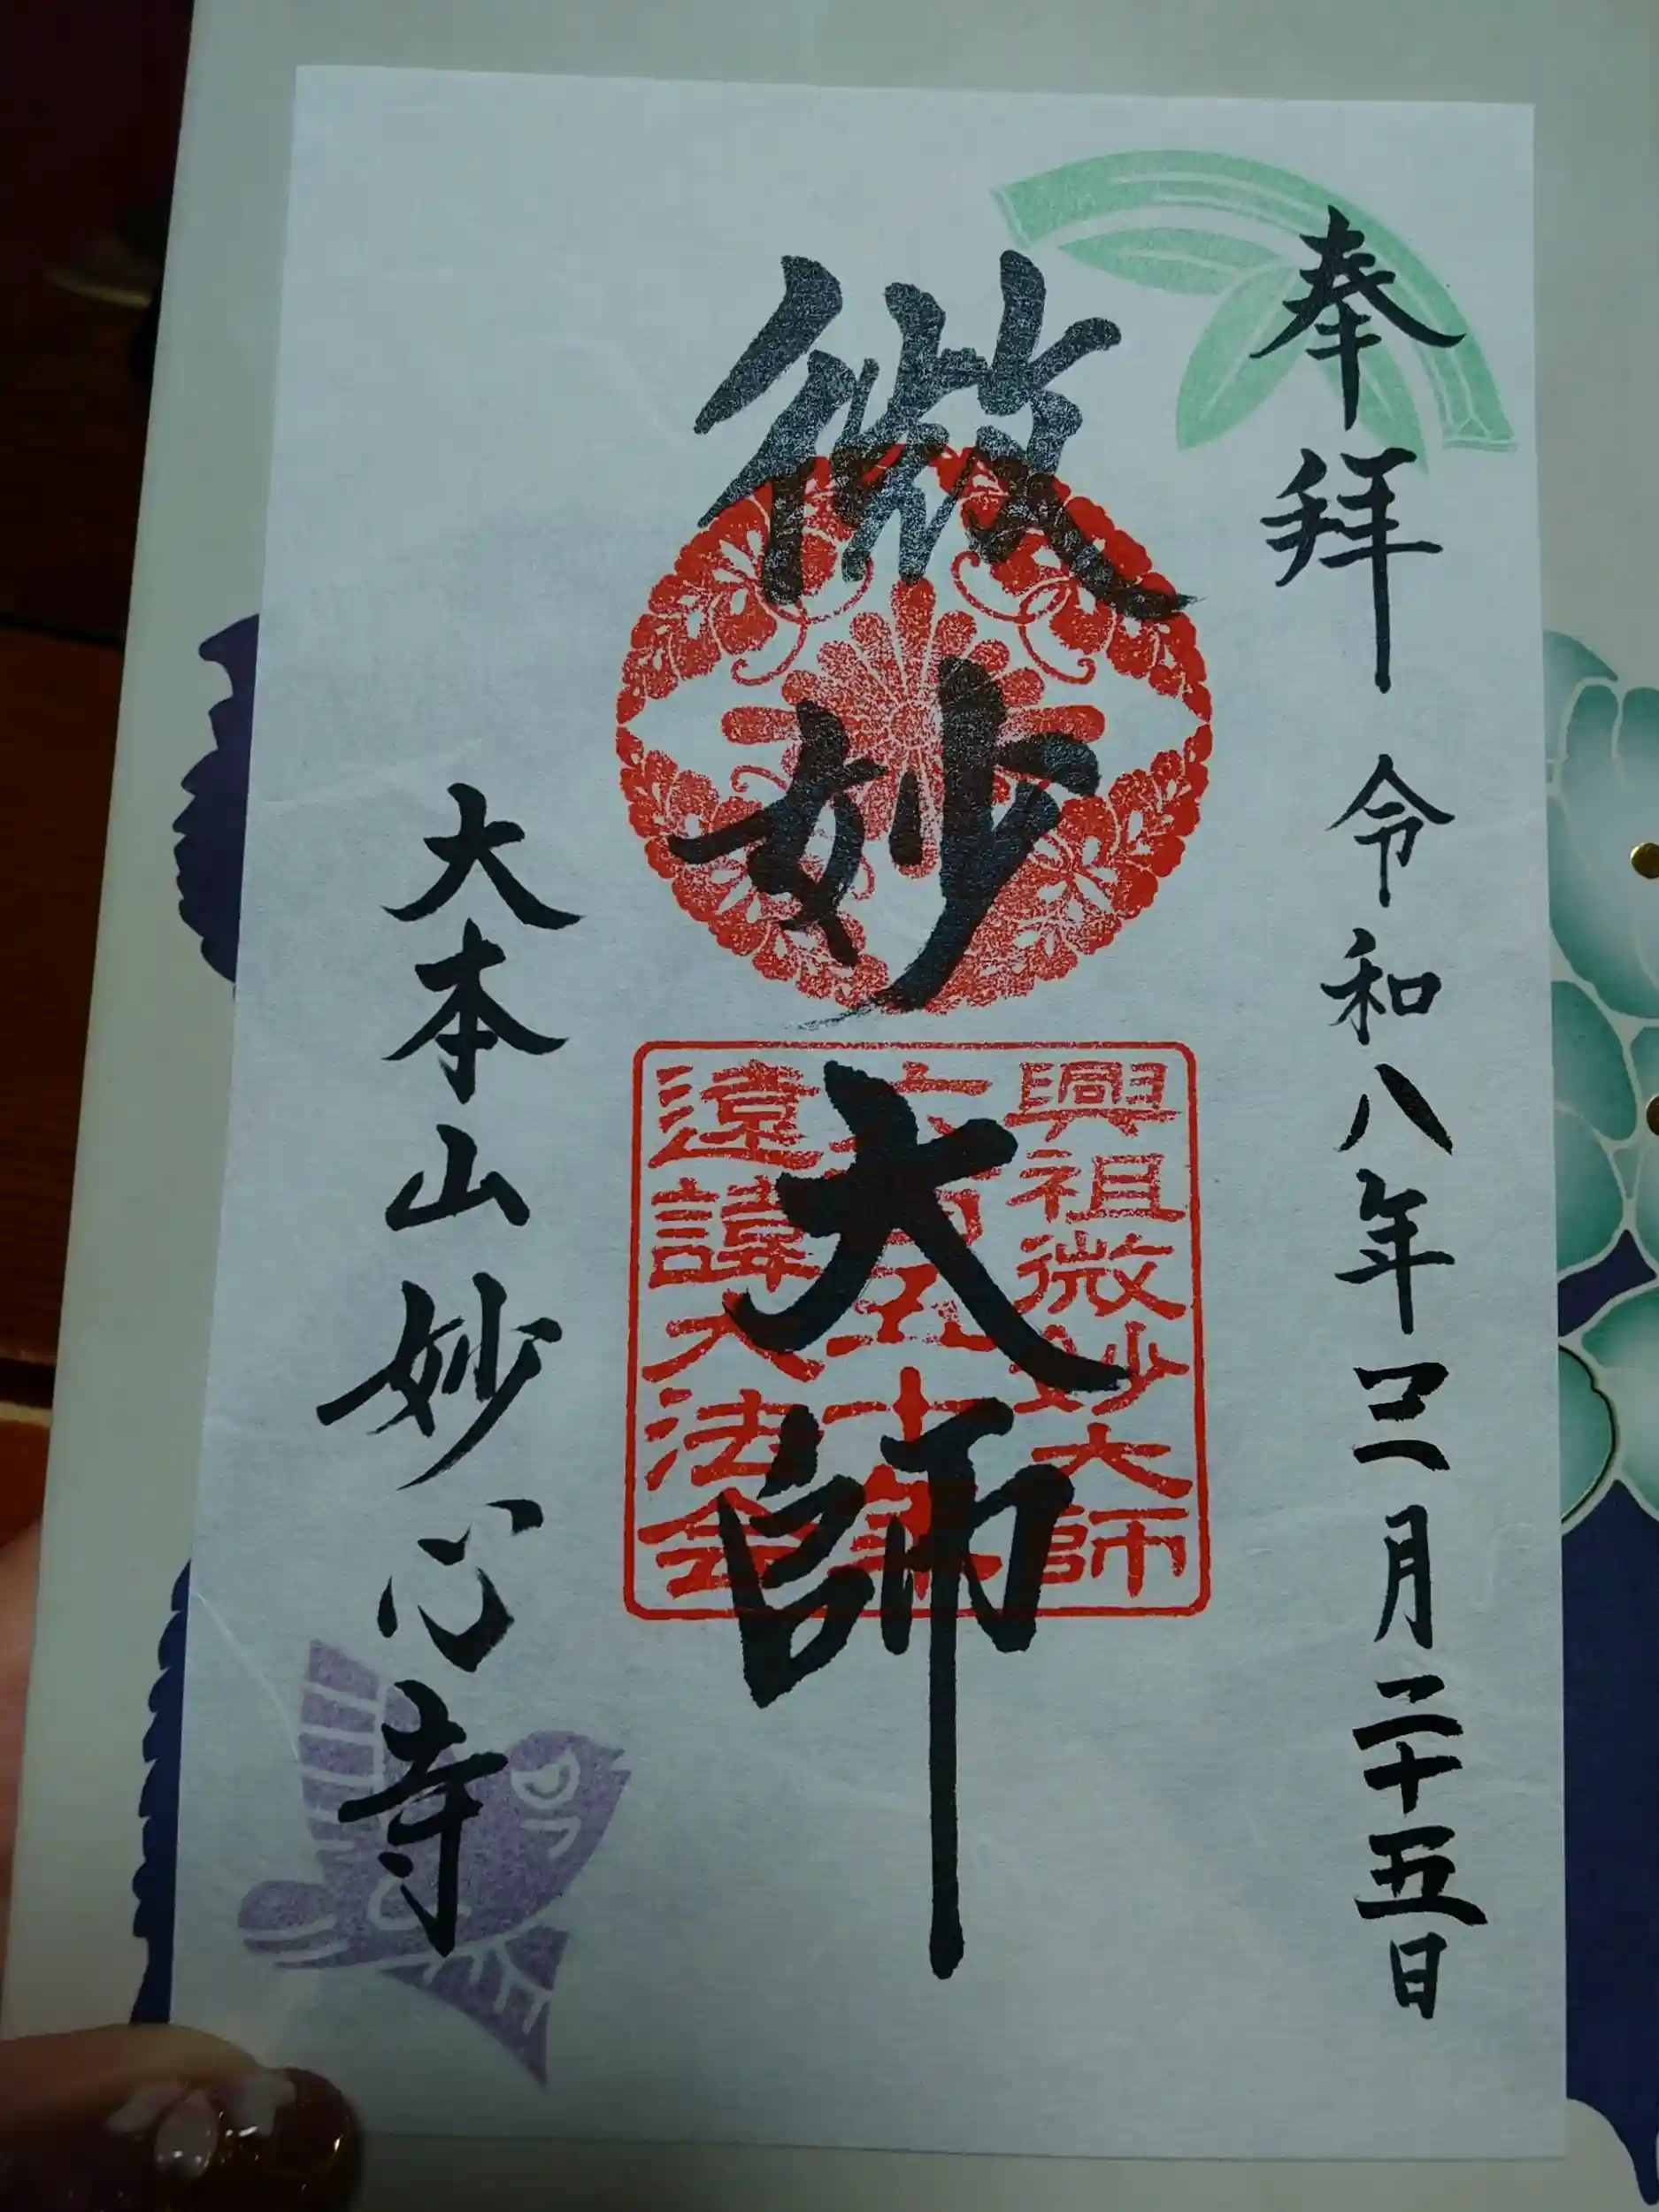 奉拝 令和八年 月二十五日
微妙大師
興祖微妙大師
六百五十年
遠諱大法会
大本山妙心寺